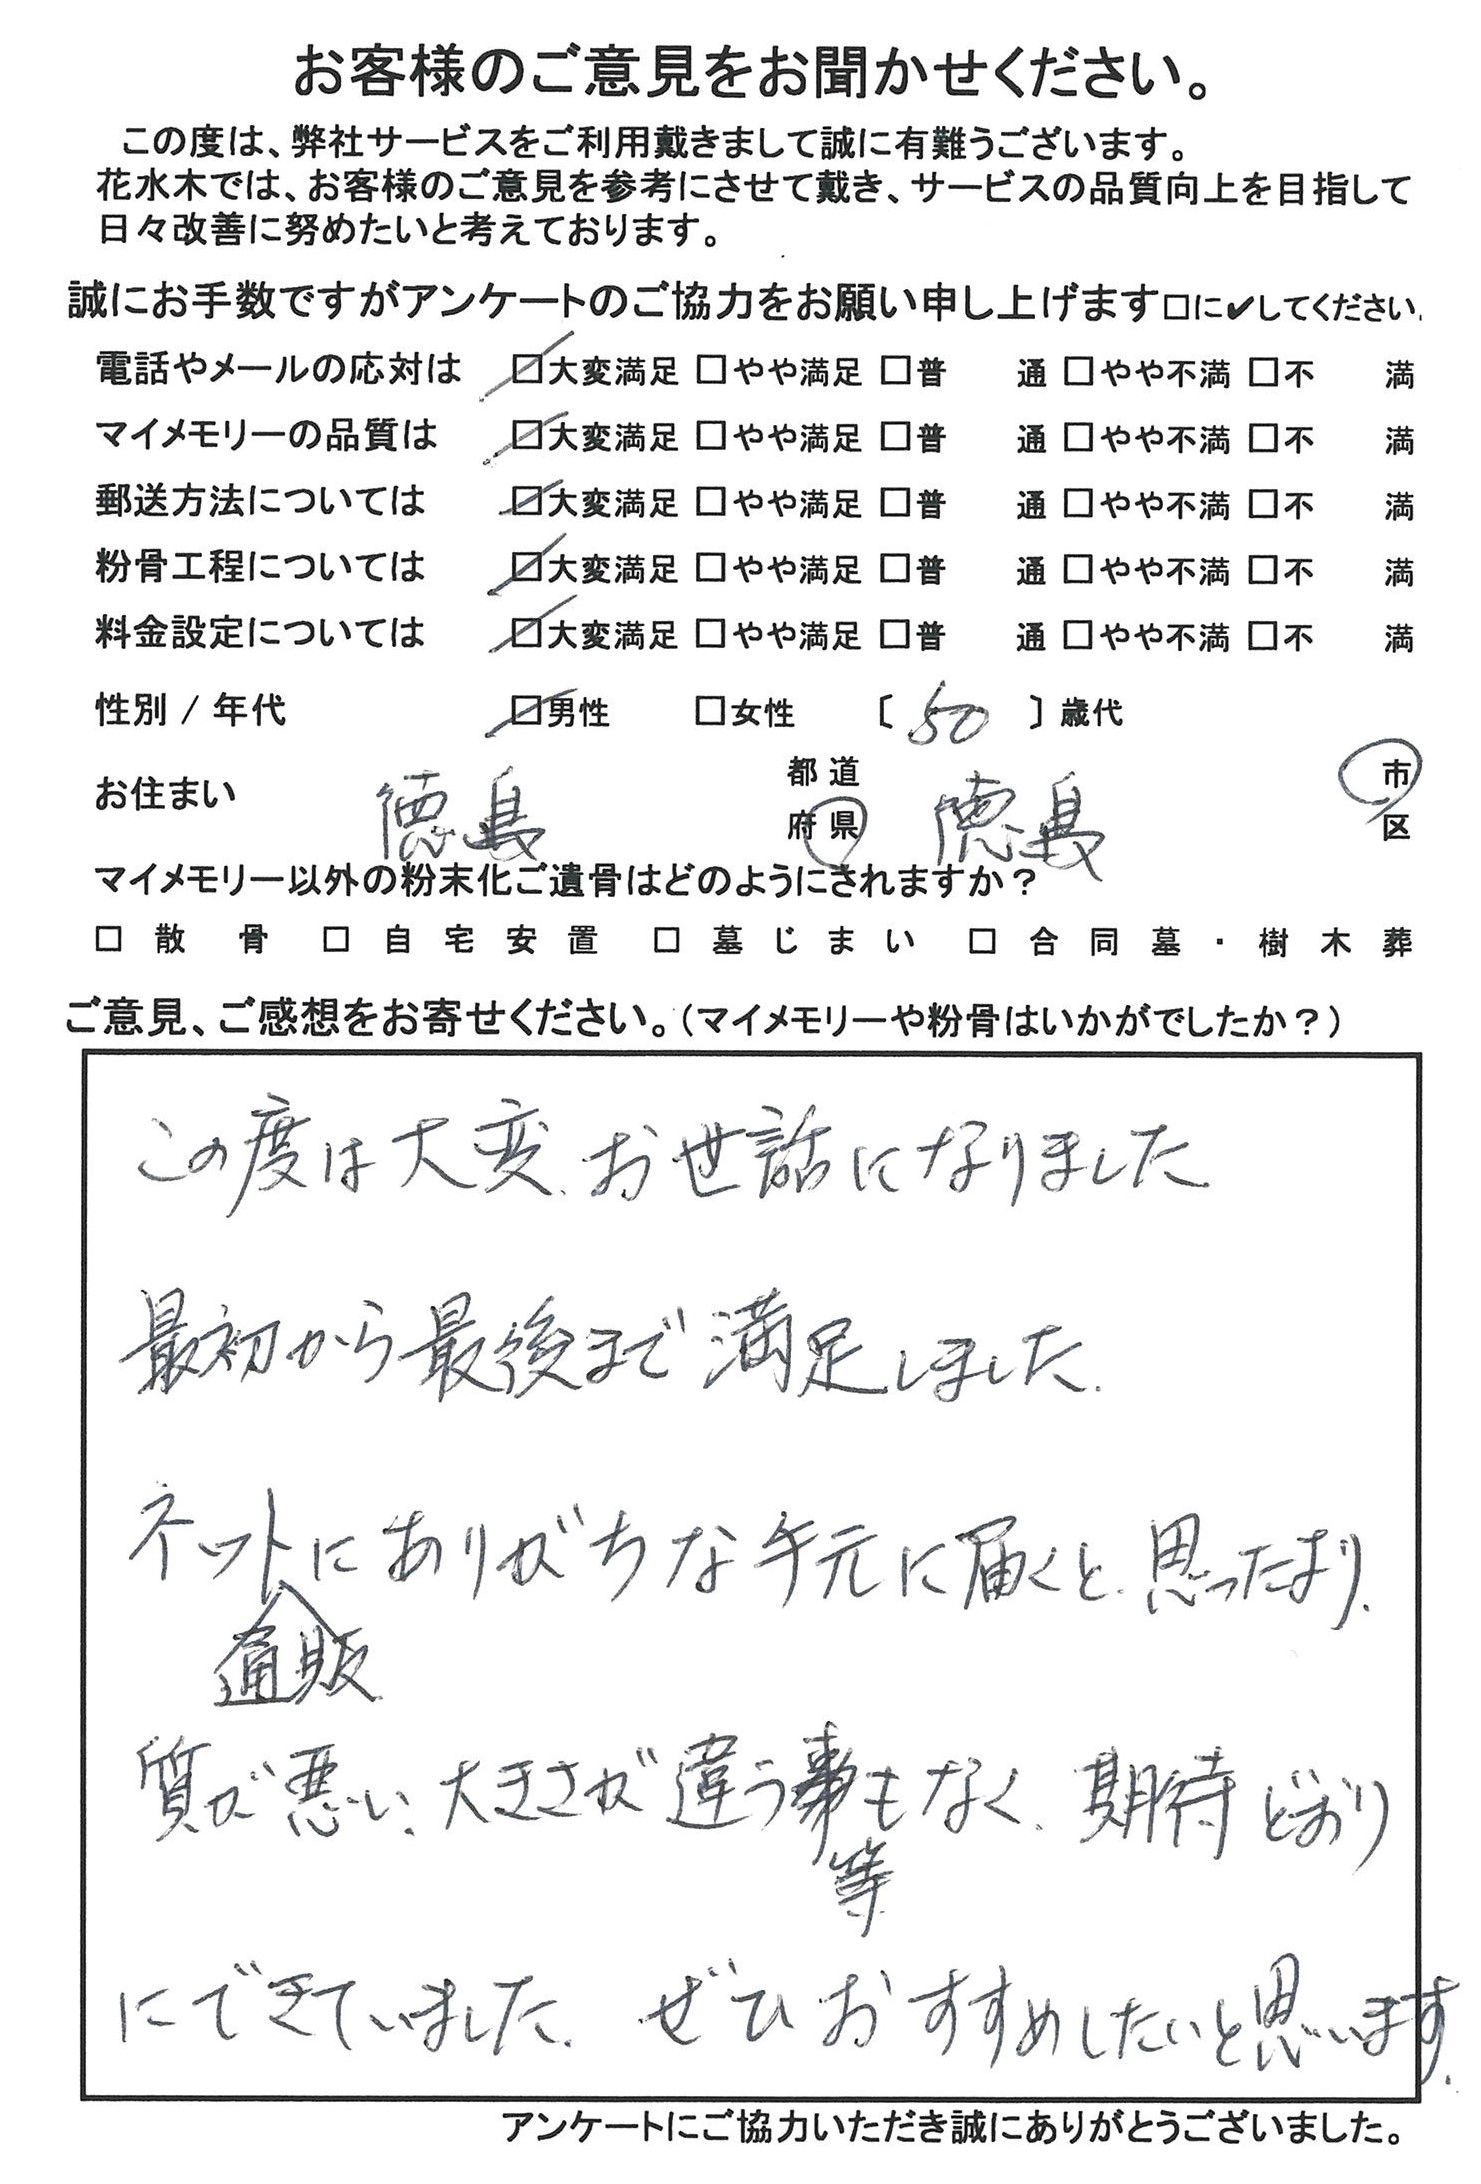 お客様のご意見をお聞かせください。
この度は、弊社サービスをご利用戴きまして誠に有難うございます。
花水木では、お客様のご意見を参考にさせて戴き、サービスの品質向上を目指して
日々改善に努めたいと考えております。
誠にお手数ですがアンケートのご協力をお願い申し上げます□に✔してください。
電話やメールの応対は ☑大変満足 □やや満足 □普 通 □やや不満 □不 満
マイメモリーの品質は ☑大変満足 □やや満足 □普 通 □やや不満 □不 満
郵送方法については ☑大変満足 □やや満足 □普 通 □やや不満 □不 満
粉骨工程については ☑大変満足 □やや満足 □普 通 □やや不満 □不 満
料金設定については ☑大変満足 □やや満足 □普 通 □やや不満 □不 満
性別 / 年代 ☑男性 □女性 〔 50 〕歳代
お住まい 徳島 都道府県 徳島 市区
マイメモリー以外の粉末化ご遺骨はどのようにされますか？
□ 散骨 □ 自宅安置 □ 墓じまい □ 合同墓・樹木葬
ご意見、ご感想をお寄せください。（マイメモリーや粉骨はいかがでしたか？）
この度は大変、お世話になりました
最初から最後まで満足しました。
ネットにありがちな手元に届くと、思ったより、
通販
質が悪い、大きさが違う事もなく、期待どおり
等
にできていました。ぜひおすすめしたいと思います。
アンケートにご協力いただき誠にありがとうございました。